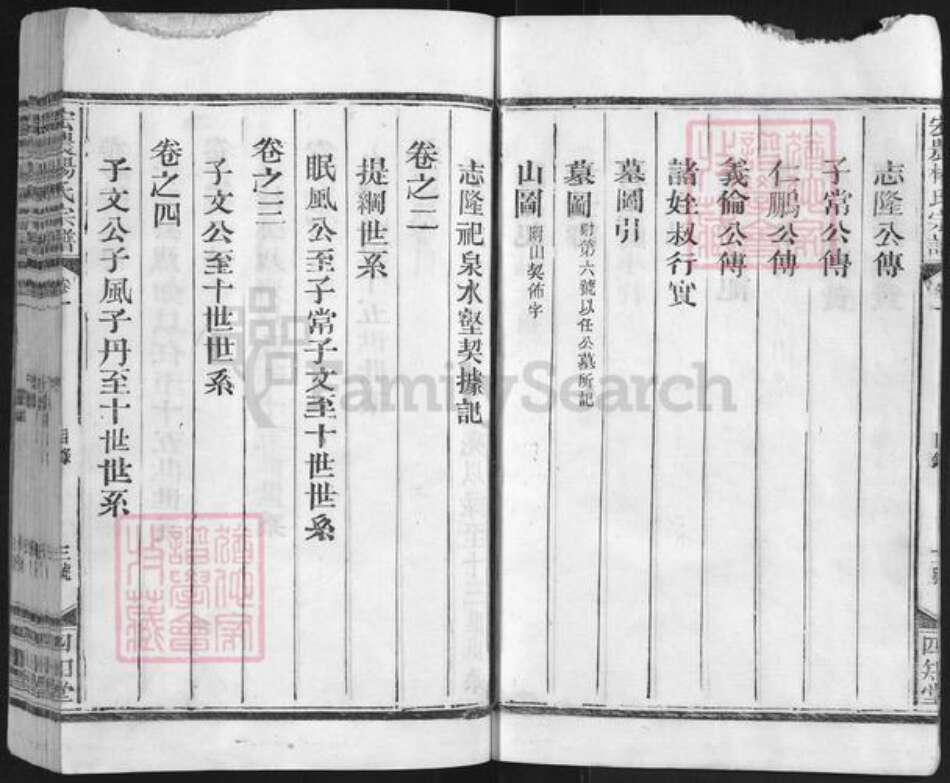 志隆公傳
子常公傳
仁鵬公傳
義倫公傳
諸姪叔行實
墓圖引
墓圖 附第六號以任公墓所記
山圖 附山契佈字
志隆祀泉水壑契據記
卷之二
提綱世系
眠風公至子常子文至十世世系
卷之三
子文公至十世世系
卷之四
子文公子風子丹至十世世系
楊氏宗譜
目錄
三號
四知堂
FamilySearch